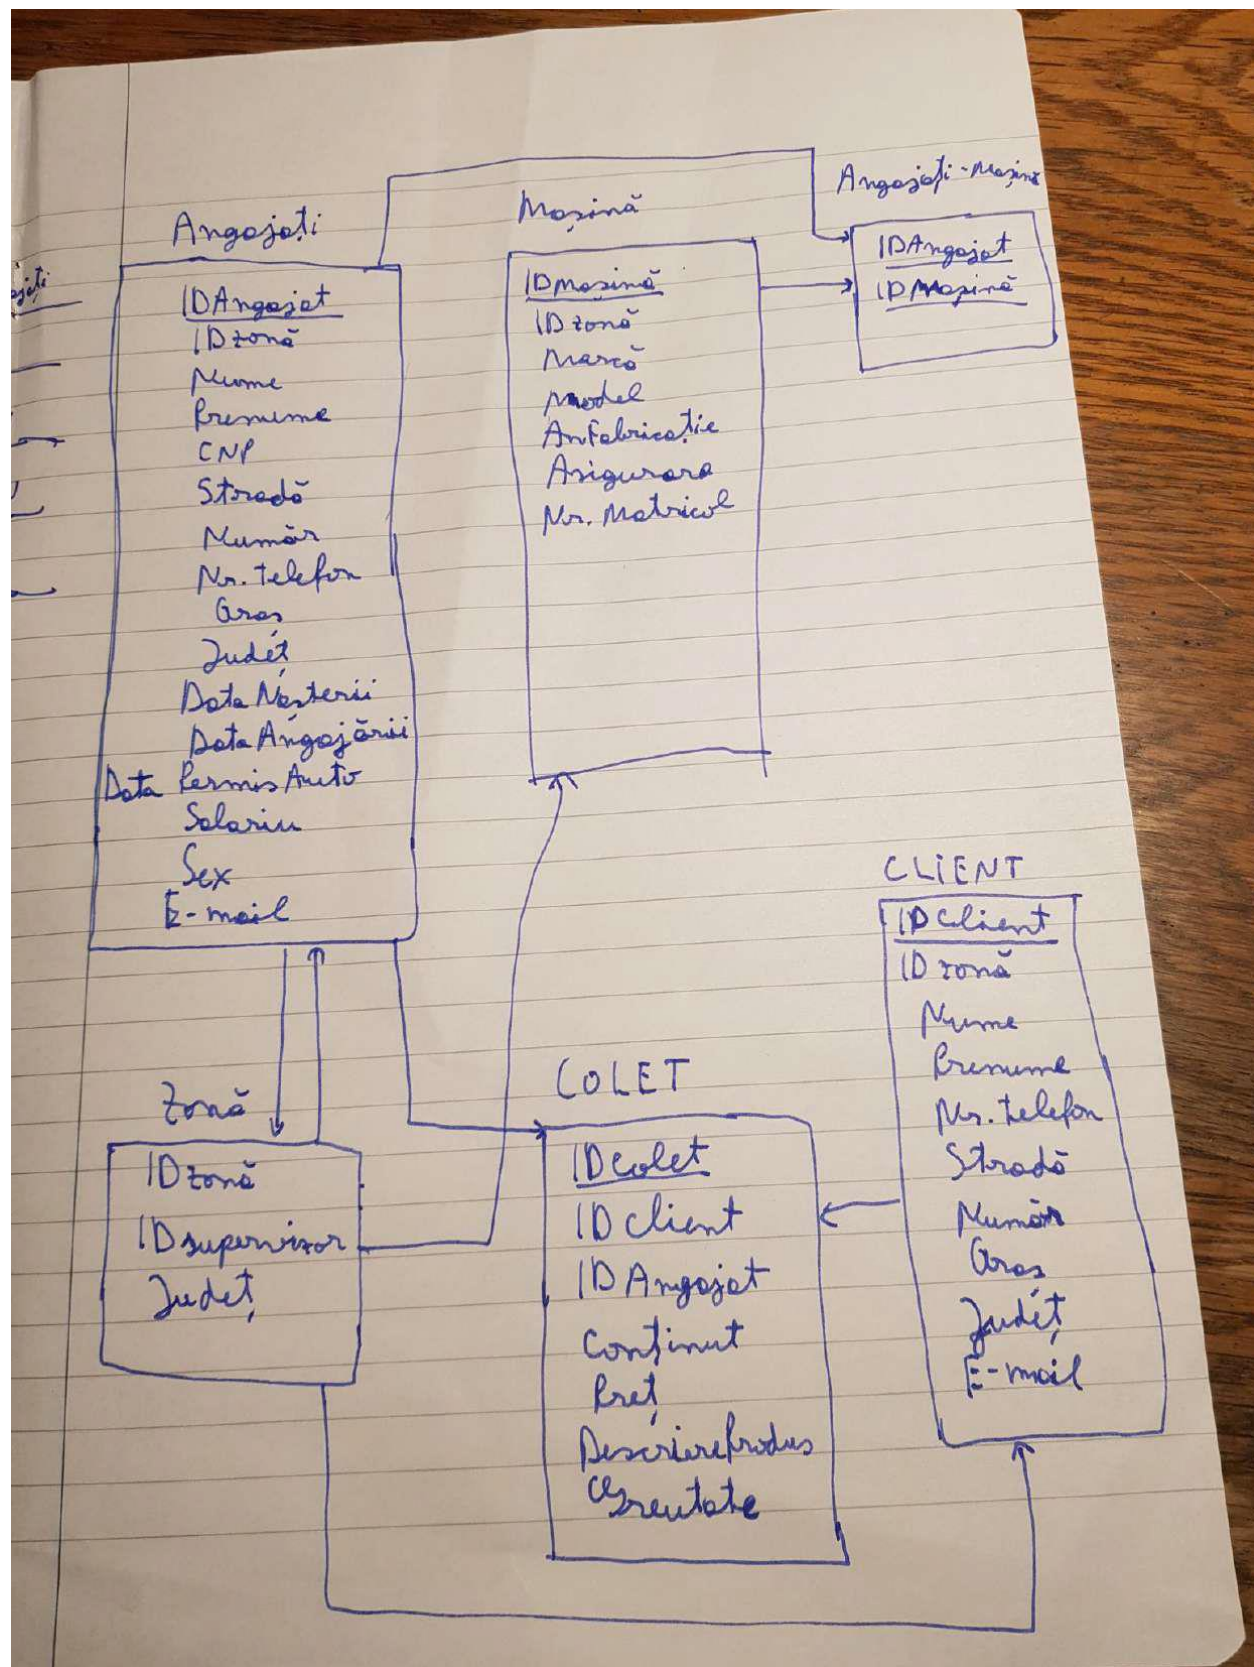 Angajați
IDAngajat
IDzonă
Nume
Prenume
CNP
Stradă
Număr
Nr. telefon
Oraș
Județ
Data Nașterii
Data Angajării
Data Permis Auto
Salariu
Sex
E-mail
Mașină
IDMașină
IDzonă
Marcă
Model
AnFabricație
Asigurare
Nr. Matricol
Angajați-Mașină
IDAngajat
IDMașină
Zonă
IDzonă
IDsupervizor
Județ
COLET
IDcolet
IDclient
IDAngajat
Conținut
Preț
DescriereProdus
Greutate
CLIENT
IDClient
IDzonă
Nume
Prenume
Nr. telefon
Stradă
Număr
Oraș
Județ
E-mail